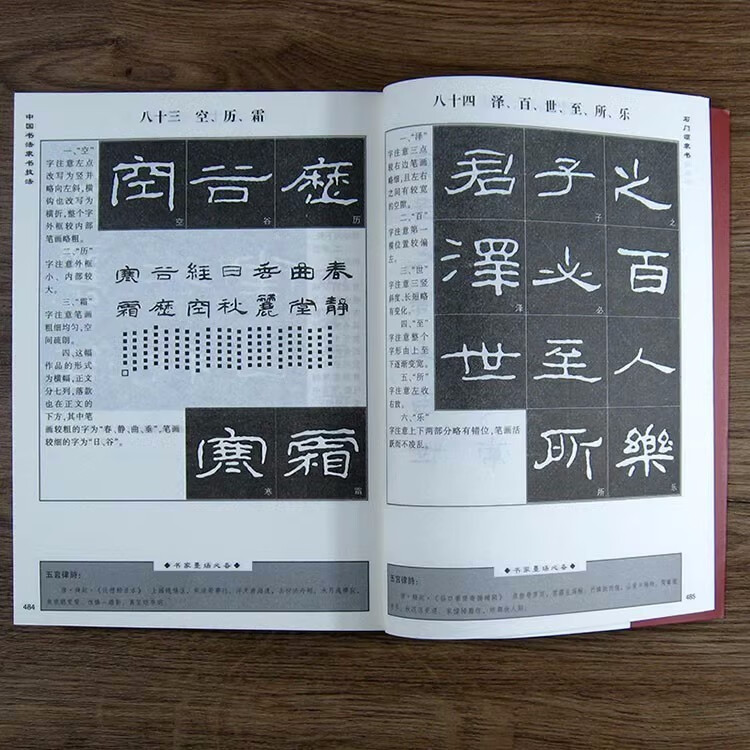 中国书法隶书技法
八十三 空、历、霜
一、“空”
字注意左点
改写为竖并
略向左斜，横
钩也改写为
横折，整个字
外框较内部
笔画略粗。
二、“历”
字注意外框
小、内部较
大。
三、“霜”
字注意笔画
粗细均匀，空
间疏朗。
四、这幅
作品的形式
为横幅，正文
分七列，落款
也在正文的
下方，其中笔
画较粗的字为“春、静、曲、垂”。笔画
较细的字为“日、谷”。
歷谷空
历 谷 空
春静
曲堂
麗
日秋
經空
谷歷
寒霜
霜寒
霜 寒
书家墨场必备
五言律詩：
484
八十四 泽、百、世、至、所、乐
石门颂隶书
一、“泽”
字注意三点
较右边笔画
略细，且左右
之间有较宽
的空隙。
二、“百”
字注意第一
横位置较偏
左。
三、“世”
字注意三竖
斜度、长短略
有变化。
四、“至”
字注意整个
字形由上至
下逐渐变宽。
五、“所”
字注意左收
右放。
六、“乐”
字注意上下两部分略有错位，笔画活
跃而不凌乱。
之百人樂
之 乐
子必至所
子 必 所
君澤世
泽
书家墨场必备
五言律詩：
485